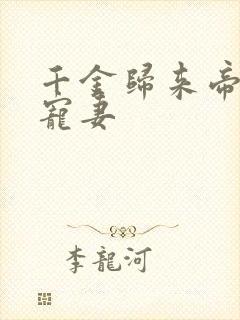 千金歸来帝
寵妻
李龍河